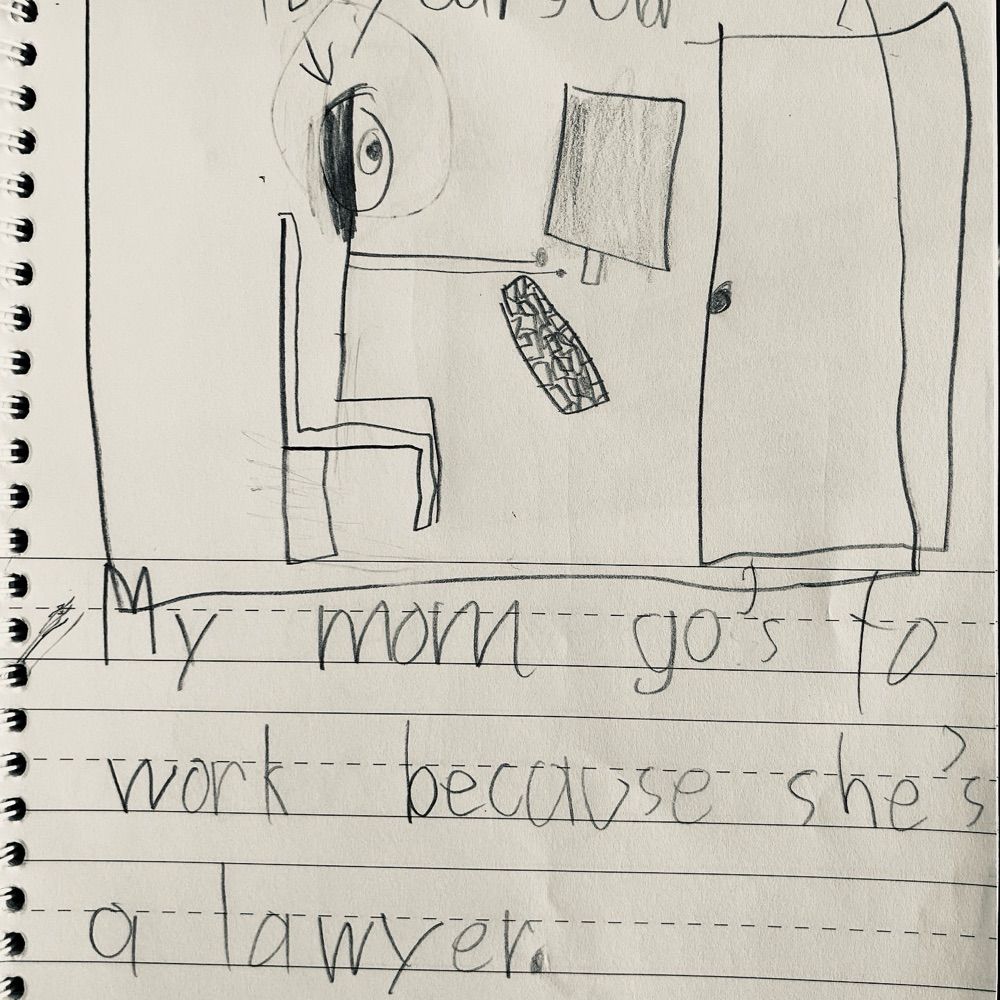 My mom go's to
work because she's
a lawyer.